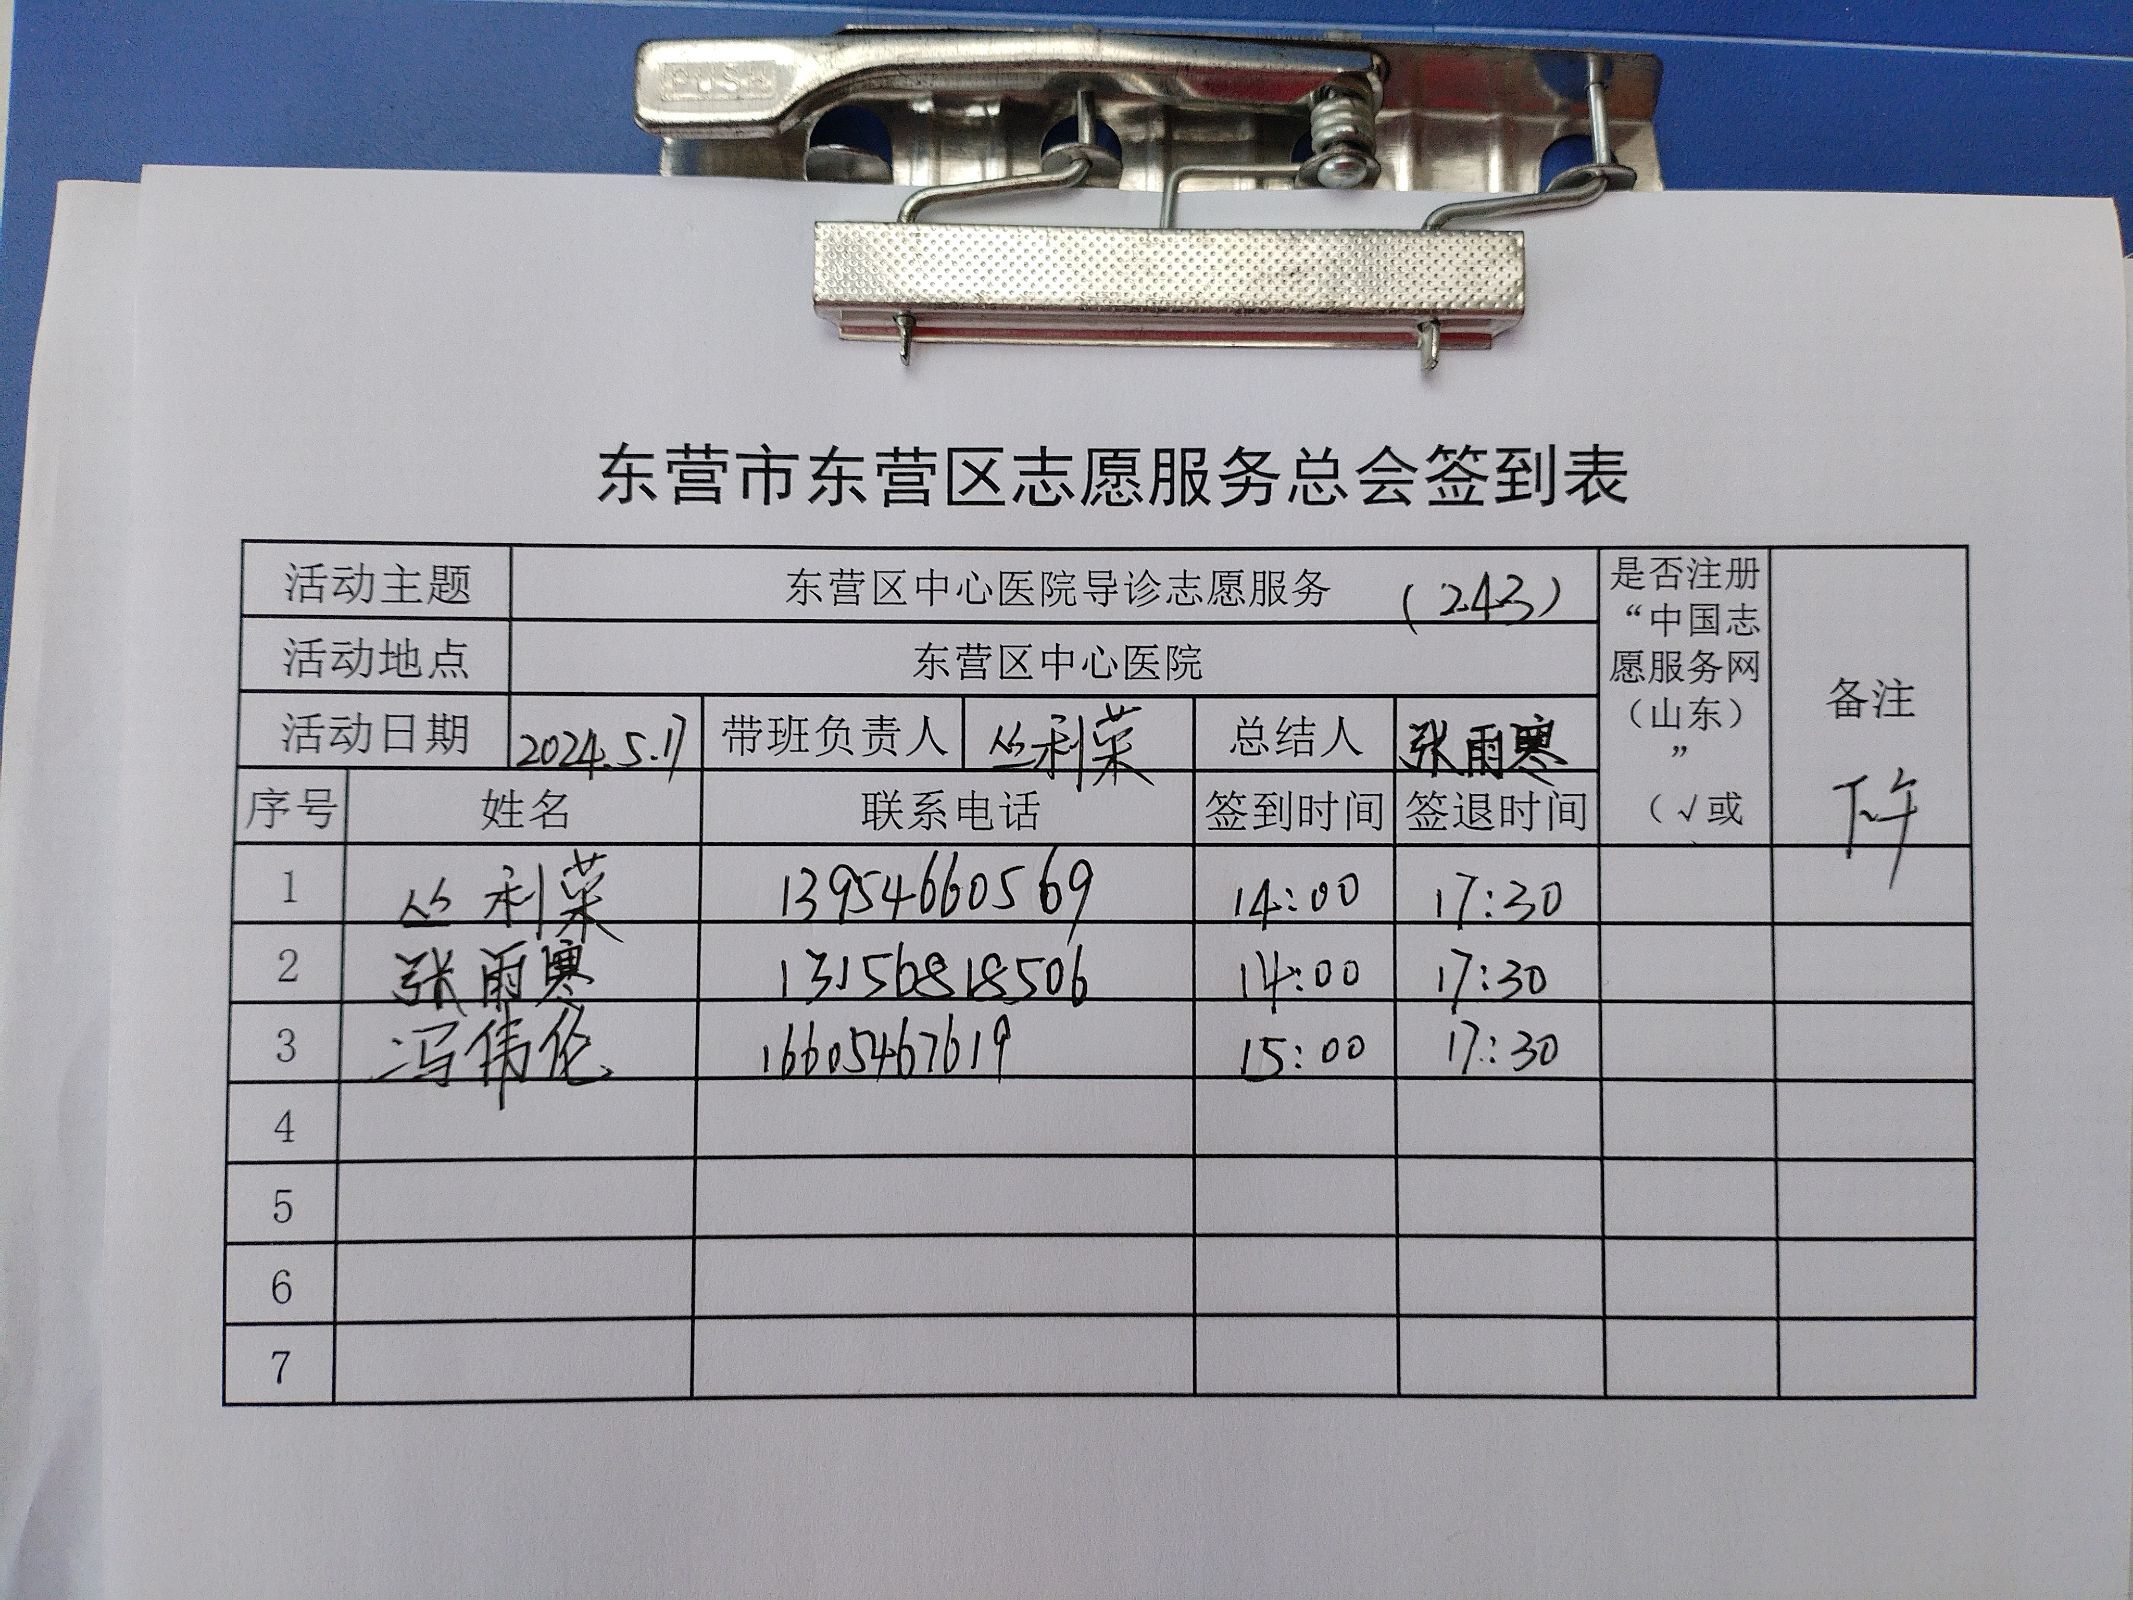 PUSH
东营市东营区志愿服务总会签到表
活动主题 东营区中心医院导诊志愿服务 (243)
活动地点 东营区中心医院
活动日期 2024.5.17 带班负责人 丛利菜 总结人 张雨寒
是否注册
“中国志
愿服务网
（山东）
”
（√或
备注
下午
序号 姓名 联系电话 签到时间 签退时间
1 丛利菜 13954660569 14:00 17:30
2 张雨寒 13156818506 14:00 17:30
3 冯伟伦 16605467619 15:00 17:30
4
5
6
7